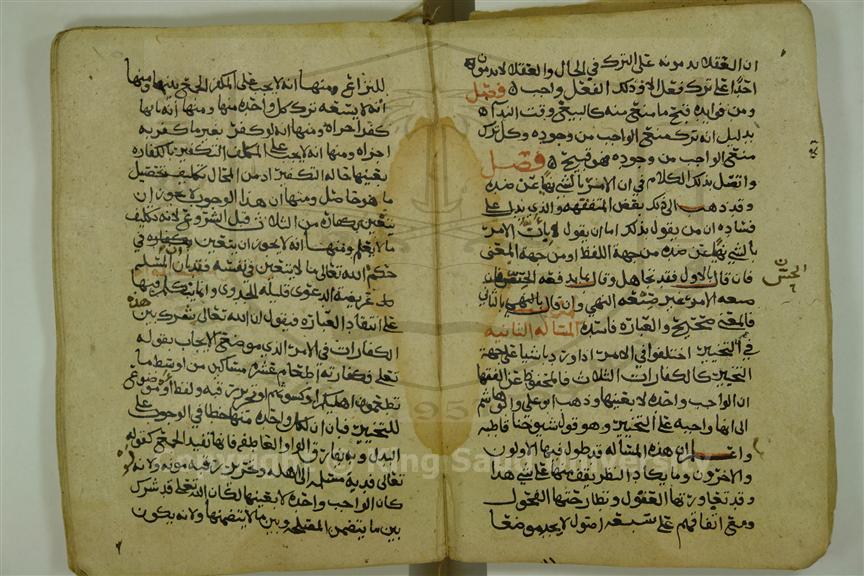 ان العقلا يذمونه على الترك في الحال والعقلا لا يذمون
احدًا على ترك فعل الا وذلك الفعل واجب فصل
ومن فوايده قبح ما منع منه كالبيع وقت النداء
بدليل انه ترك منع الواجب من وجوده وكل ترك
منع الواجب من وجوده فهو قبيح فصل
واتصل بذلك الكلام في ان الامر بالشي نهيا عن ضده
وقد ذهب الى ذلك بعض المتفقهه والذي يدل على
فساده ان من يقول بذلك اما ان يقول لان الامر
بالشي نهي عن ضده من جهة اللفظ او من جهة المعنى
فان قال بالاول فقد تجاهل وقال
صيغه الامر غير صيغه النهي وان قال بالثاني
فالمعنى صحيح والعباره فاسده المسألة الثانيه
في التخيير اختلفوا في الامر اذا ورد باشيا على جهة
التخيير كالكفارات الثلاث فالمحفوظ عن الفقها
ان الواجب واحده لا بعينها وذهب ابو علي وابو هاشم
الى انها واجبه على التخيير وهو قول شيوخنا قاطبه
واعلم ان هذه المسأله قد طول فيها الاولون
والاخرون وما يكاد النظر يقف منها على شي هذا
وقد تعاورتها العقول وتطارحتها الفحول
ومع اتفاقهم على سبعه اصول لا يجد موضعا
للنزاع ومنها انه لا يجب على المكلف الجمع بينها ومنها
انه لا يسعه ترك كل واحده منها ومنها انه بايها
كفر اجزاه ومنها انه لو كفر بغير ما كفر به
اجزاه ومنها انه لا يجب على المكلف التكفير بالكفاره
بعينها حاله التكفير اذ من المحال تكليف تحصيل
ما هو حاصل ومنها ان هذا الوجوب لا يجوز ان
يتعين بكفاره من الثلاث قبل الشروع لانه تكليف
ما لا يعلم ومنها انه لا يجوز ان يتعين بكفاره في
حكم الله تعالى ما لا يتعين في نفسه فقد بان المسلم
قليله الجدوى وانما نتكلم فيها
على انتقاد العباره فيقول ان الله تعالى شرك بين هذه
الكفارات في الامر الذي هو مقتضى الايجاب بقوله
تعالى فكفارته اطعام عشرة مساكين من اوسط ما
تطعمون اهليكم او كسوتهم او تحرير رقبه ولفظ او موضوع
للتخيير فبان ان لكل واحده منها حظا في الوجوب على
البدل وبه يفارق الواو العاطفه فانها تفيد الجمع كقوله
تعالى فديه مسلمه الى اهله وتحرير رقبه مومنه ولانه لو
كان الواجب واحده لا بعينها لكان الله تعالى قد شرك
بين ما يتضمن المصلحه وبين ما لا يتضمنها ولانه يكون
Copyright © King Saud University